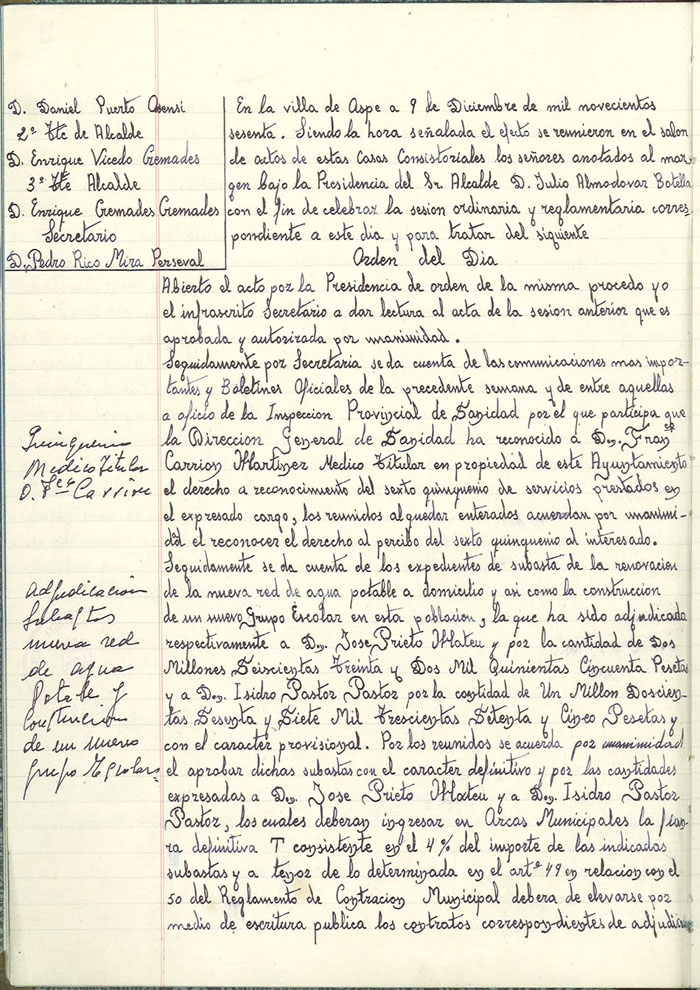 D. Daniel Puerto Asensi
2º Tte de Alcalde
D. Enrique Vicedo Cremades
3º Tte Alcalde
D. Enrique Cremades Cremades
Secretario
D. Pedro Rico Mira Perseval
En la villa de Aspe a 9 de Diciembre de mil novecientos
sesenta. Siendo la hora señalada el efeito se reunieron en el salon
de actos de estas Casas Consistoriales los señores anotados al mar-
gen bajo la Presidencia del Sr. Alcalde D. Julio Almodovar Botella
con el fin de celebrar la sesion ordinaria y reglamentaria corres
pondiente a este dia y para tratar del siguiente
Orden del Dia
Abierto el acto por la Presidencia de orden de la misma procedo yo
el infrascrito Secretario a dar lectura al acta de la sesion anterior que es
aprobada y autorizada por unanimidad.
Seguidamente por Secretaria se da cuenta de las comunicaciones mas impor-
tantes y Boletines Oficiales de la precedente semana y de entre aquellas
a oficio de la Inspeccion Provincial de Sanidad por el que participa que
la Direccion General de Sanidad ha reconocido a Dn. Fran
Carrion Martinez Medico Titular en propiedad de este Ayuntamiento
el derecho a reconocimiento del sexto quinquenio de servicios prestados en
el expresado cargo, los reunidos al quedar enterados acuerdan por unanimi-
dad el reconocer el derecho al percibo del sexto quinquenio al interesado.
Seguidamente se da cuenta de los expedientes de subasta de la renovacion
de la nueva red de agua potable a domicilio y asi como la construccion
de un nuevo Grupo Escolar en esta poblacion, la que ha sido adjudicada
respectivamente a Dn. Jose Prieto Mateu y por la cantidad de Dos
Millones Seiscientas Treinta y Dos Mil Quinientas Cincuenta Pesetas
y a Dn. Isidro Pastor Pastor por la cantidad de Un Millon Doscien-
tas Sesenta y Siete Mil Trescientas Setenta y Cinco Pesetas y
con el caracter provisional. Por los reunidos se acuerda por unanimidad
el aprobar dichas subastas con el caracter definitivo y por las cantidades
expresadas a Dn. Jose Prieto Mateu y a Dn. Isidro Pastor
Pastor, los cuales deberan ingresar en Arcas Municipales la fian-
ra definitiva T consistente en el 4% del importe de las indicadas
subastas y a tenor de lo determinada en el artº 49 en relacion con el
50 del Reglamento de Contracion Municipal debera de elevarse por
medio de escritura publica los contratos correspondientes de adjudica
Quinquenio
Medico Titular
D. Fco Carrion
Adjudicacion
Subastas
nueva red
de agua
Potable y
Construccion
de un nuevo
grupo Escolar